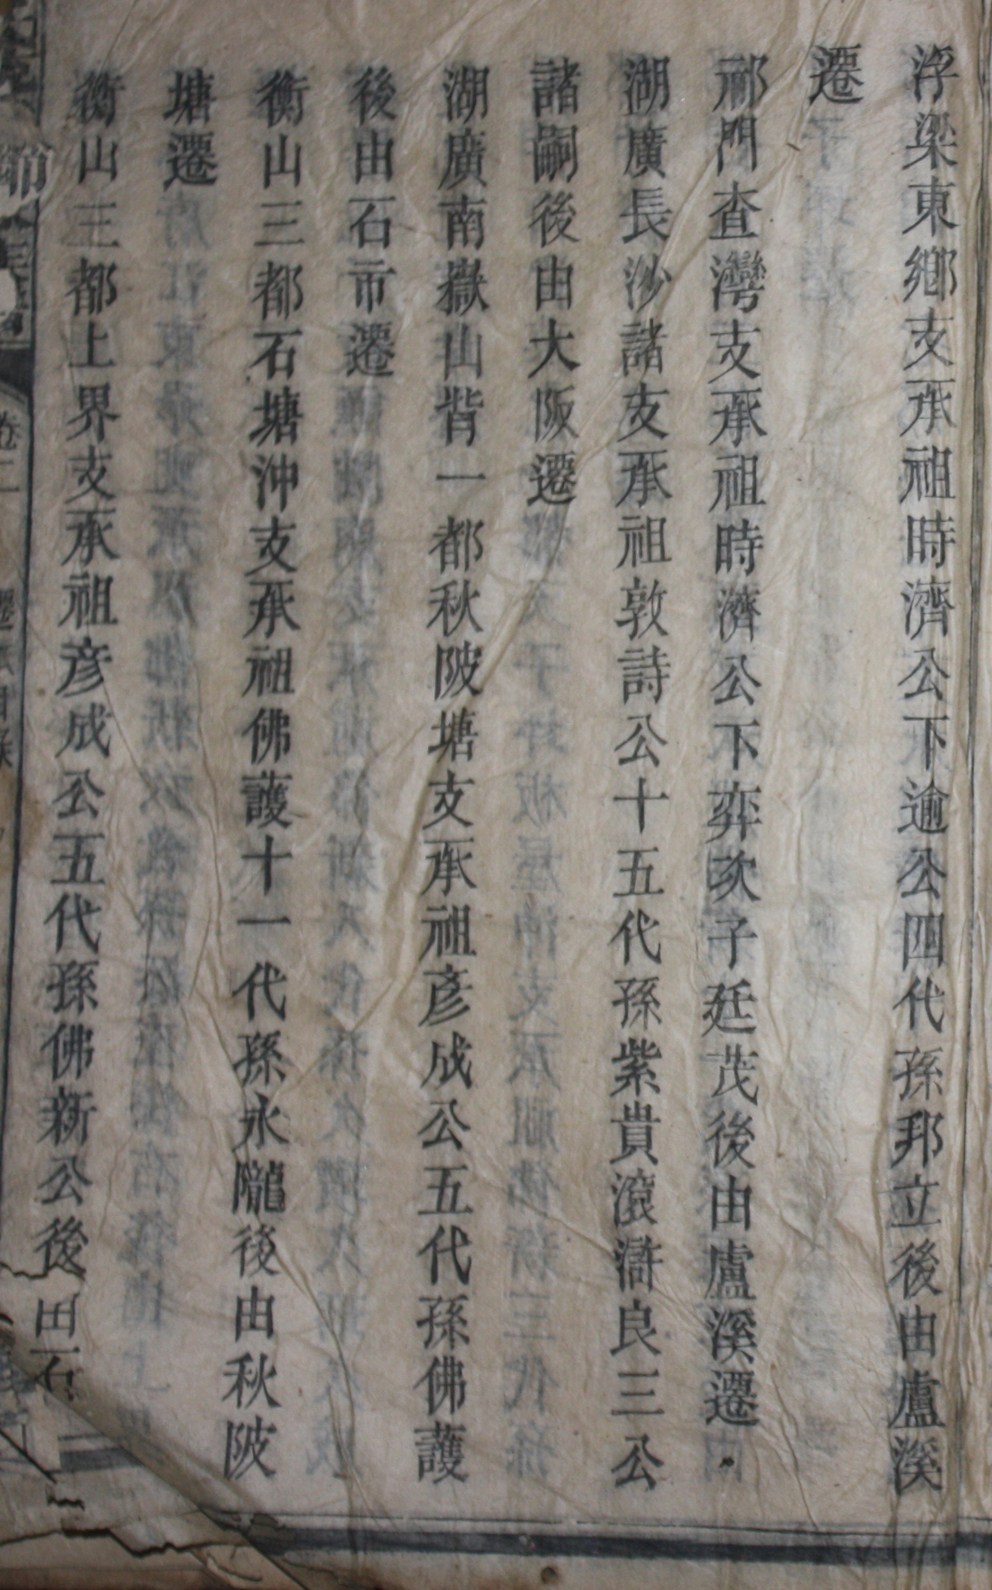 浮梁東鄉支承祖時濟公下逾公四代孫邦立後由盧溪
遷
祁門查灣支承祖時濟公下弈次子廷茂後由盧溪遷
湖廣長沙諸支承祖敦詩公十五代孫紫貴滾滸良三公
諸嗣後由大阪遷
湖廣南嶽山背一都秋陂塘支承祖彦成公五代孫佛護
後由石市遷
衡山三都石塘沖支承祖佛護十一代孫永隴後由秋陂
塘遷
衡山三都上界支承祖彦成公五代孫佛新公後由石
卷二